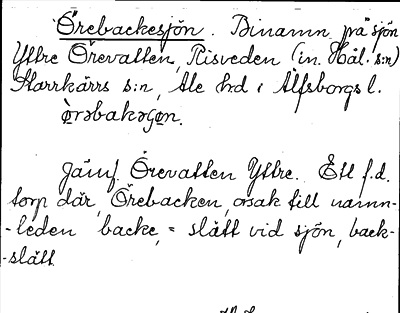 Örebackesjön. Binamn på sjön
Yttre Örevatten, Risveden (in. Hål. s:n)
Starrkärrs s:n, Ale hd i Älfsborgs l.
Jämf. Örevatten Yttre. Ett f.d.
torp där, Örebacken, orsak till namn-
-leden backe, = slätt vid sjön, back-
-slätt